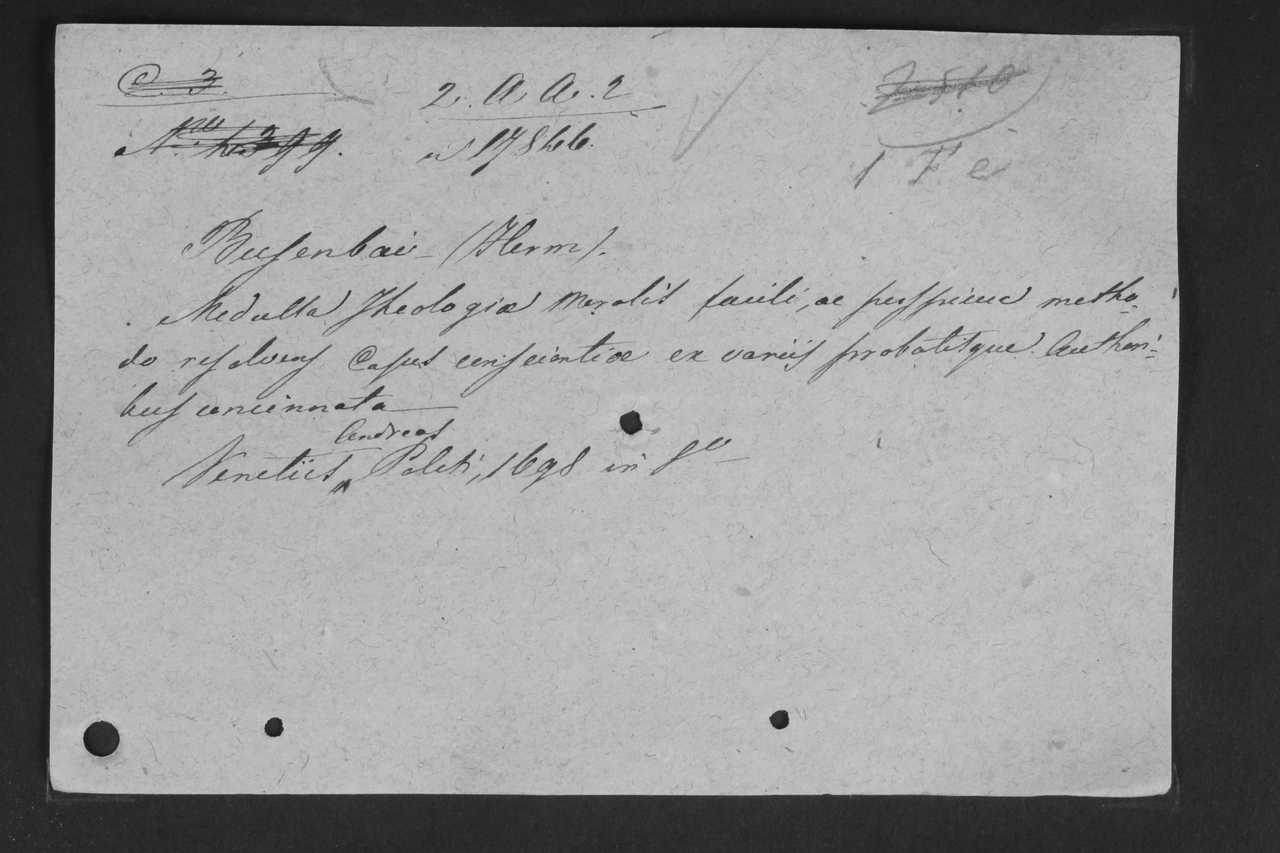 C. 3.
2. A A. 2
N.ro
17866.
1 F e
Busenbai (Herm).
Medulla Theologiæ Moralis facili, ac perspicuc metho-
do resolvens Casus conscientiæ ex variis probatisque Authori-
bus concinnata
Andreas
Venetiis Poleti, 1698 in 8o